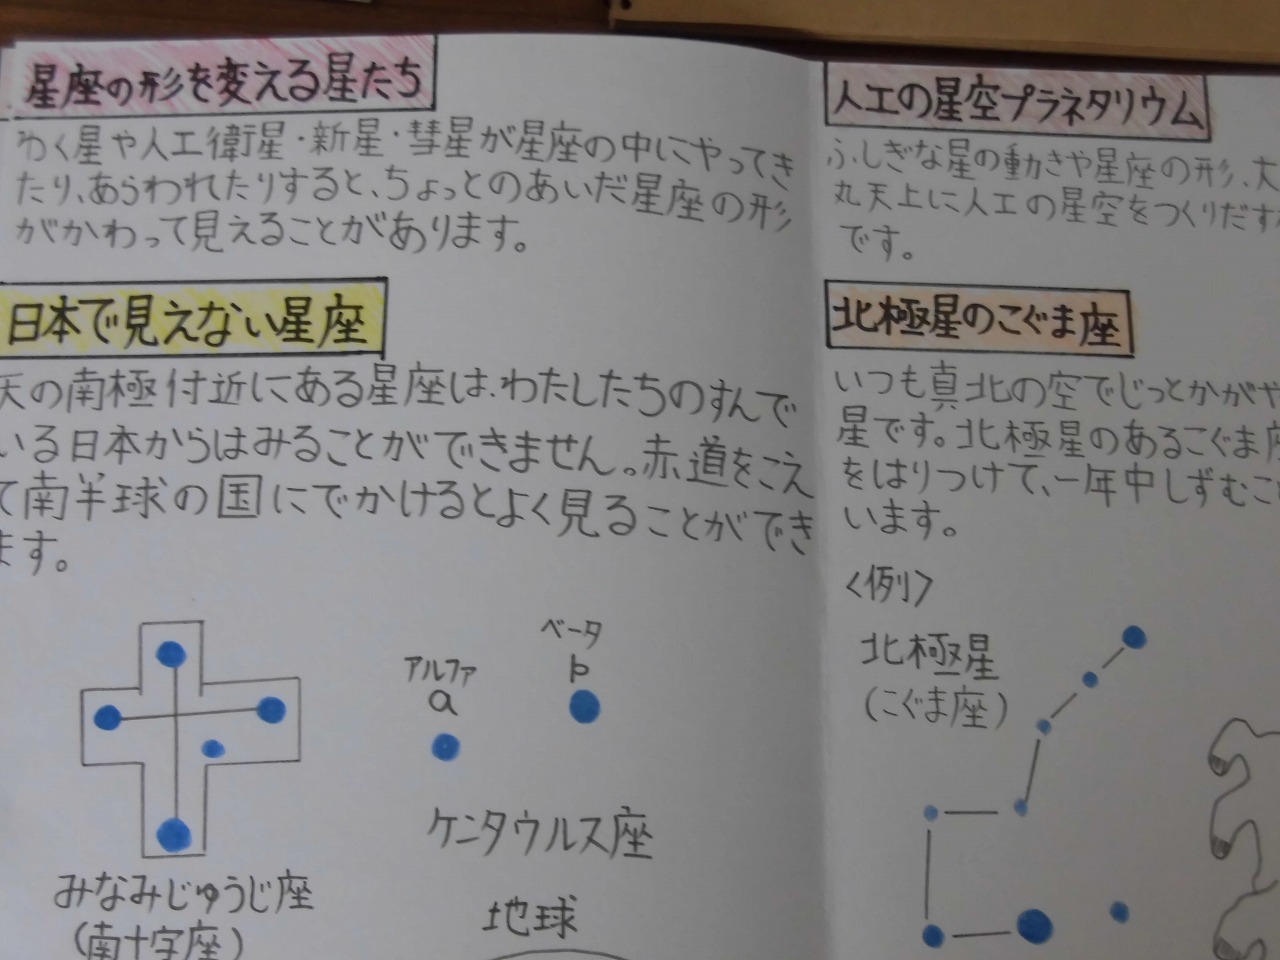 星座の形を変える星たち
わく星や人工衛星・新星・彗星が星座の中にやってき
たり、あらわれたりすると、ちょっとのあいだ星座の形
がかわって見えることがあります。
日本で見えない星座
天の南極付近にある星座は、わたしたちのすんで
いる日本からはみることができません。赤道をこえ
て南半球の国にでかけるとよく見ることができ
ます。
アルファ
a
ベータ
b
ケンタウルス座
みなみじゅうじ座
(南十字座)
地球
人工の星空プラネタリウム
ふしぎな星の動きや星座の形、大
丸天上に人工の星空をつくりだす
です。
北極星のこぐま座
いつも真北の空でじっとかがや
星です。北極星のあるこぐま座
をはりつけて、一年中しずむこ
います。
<例>
北極星
(こぐま座)